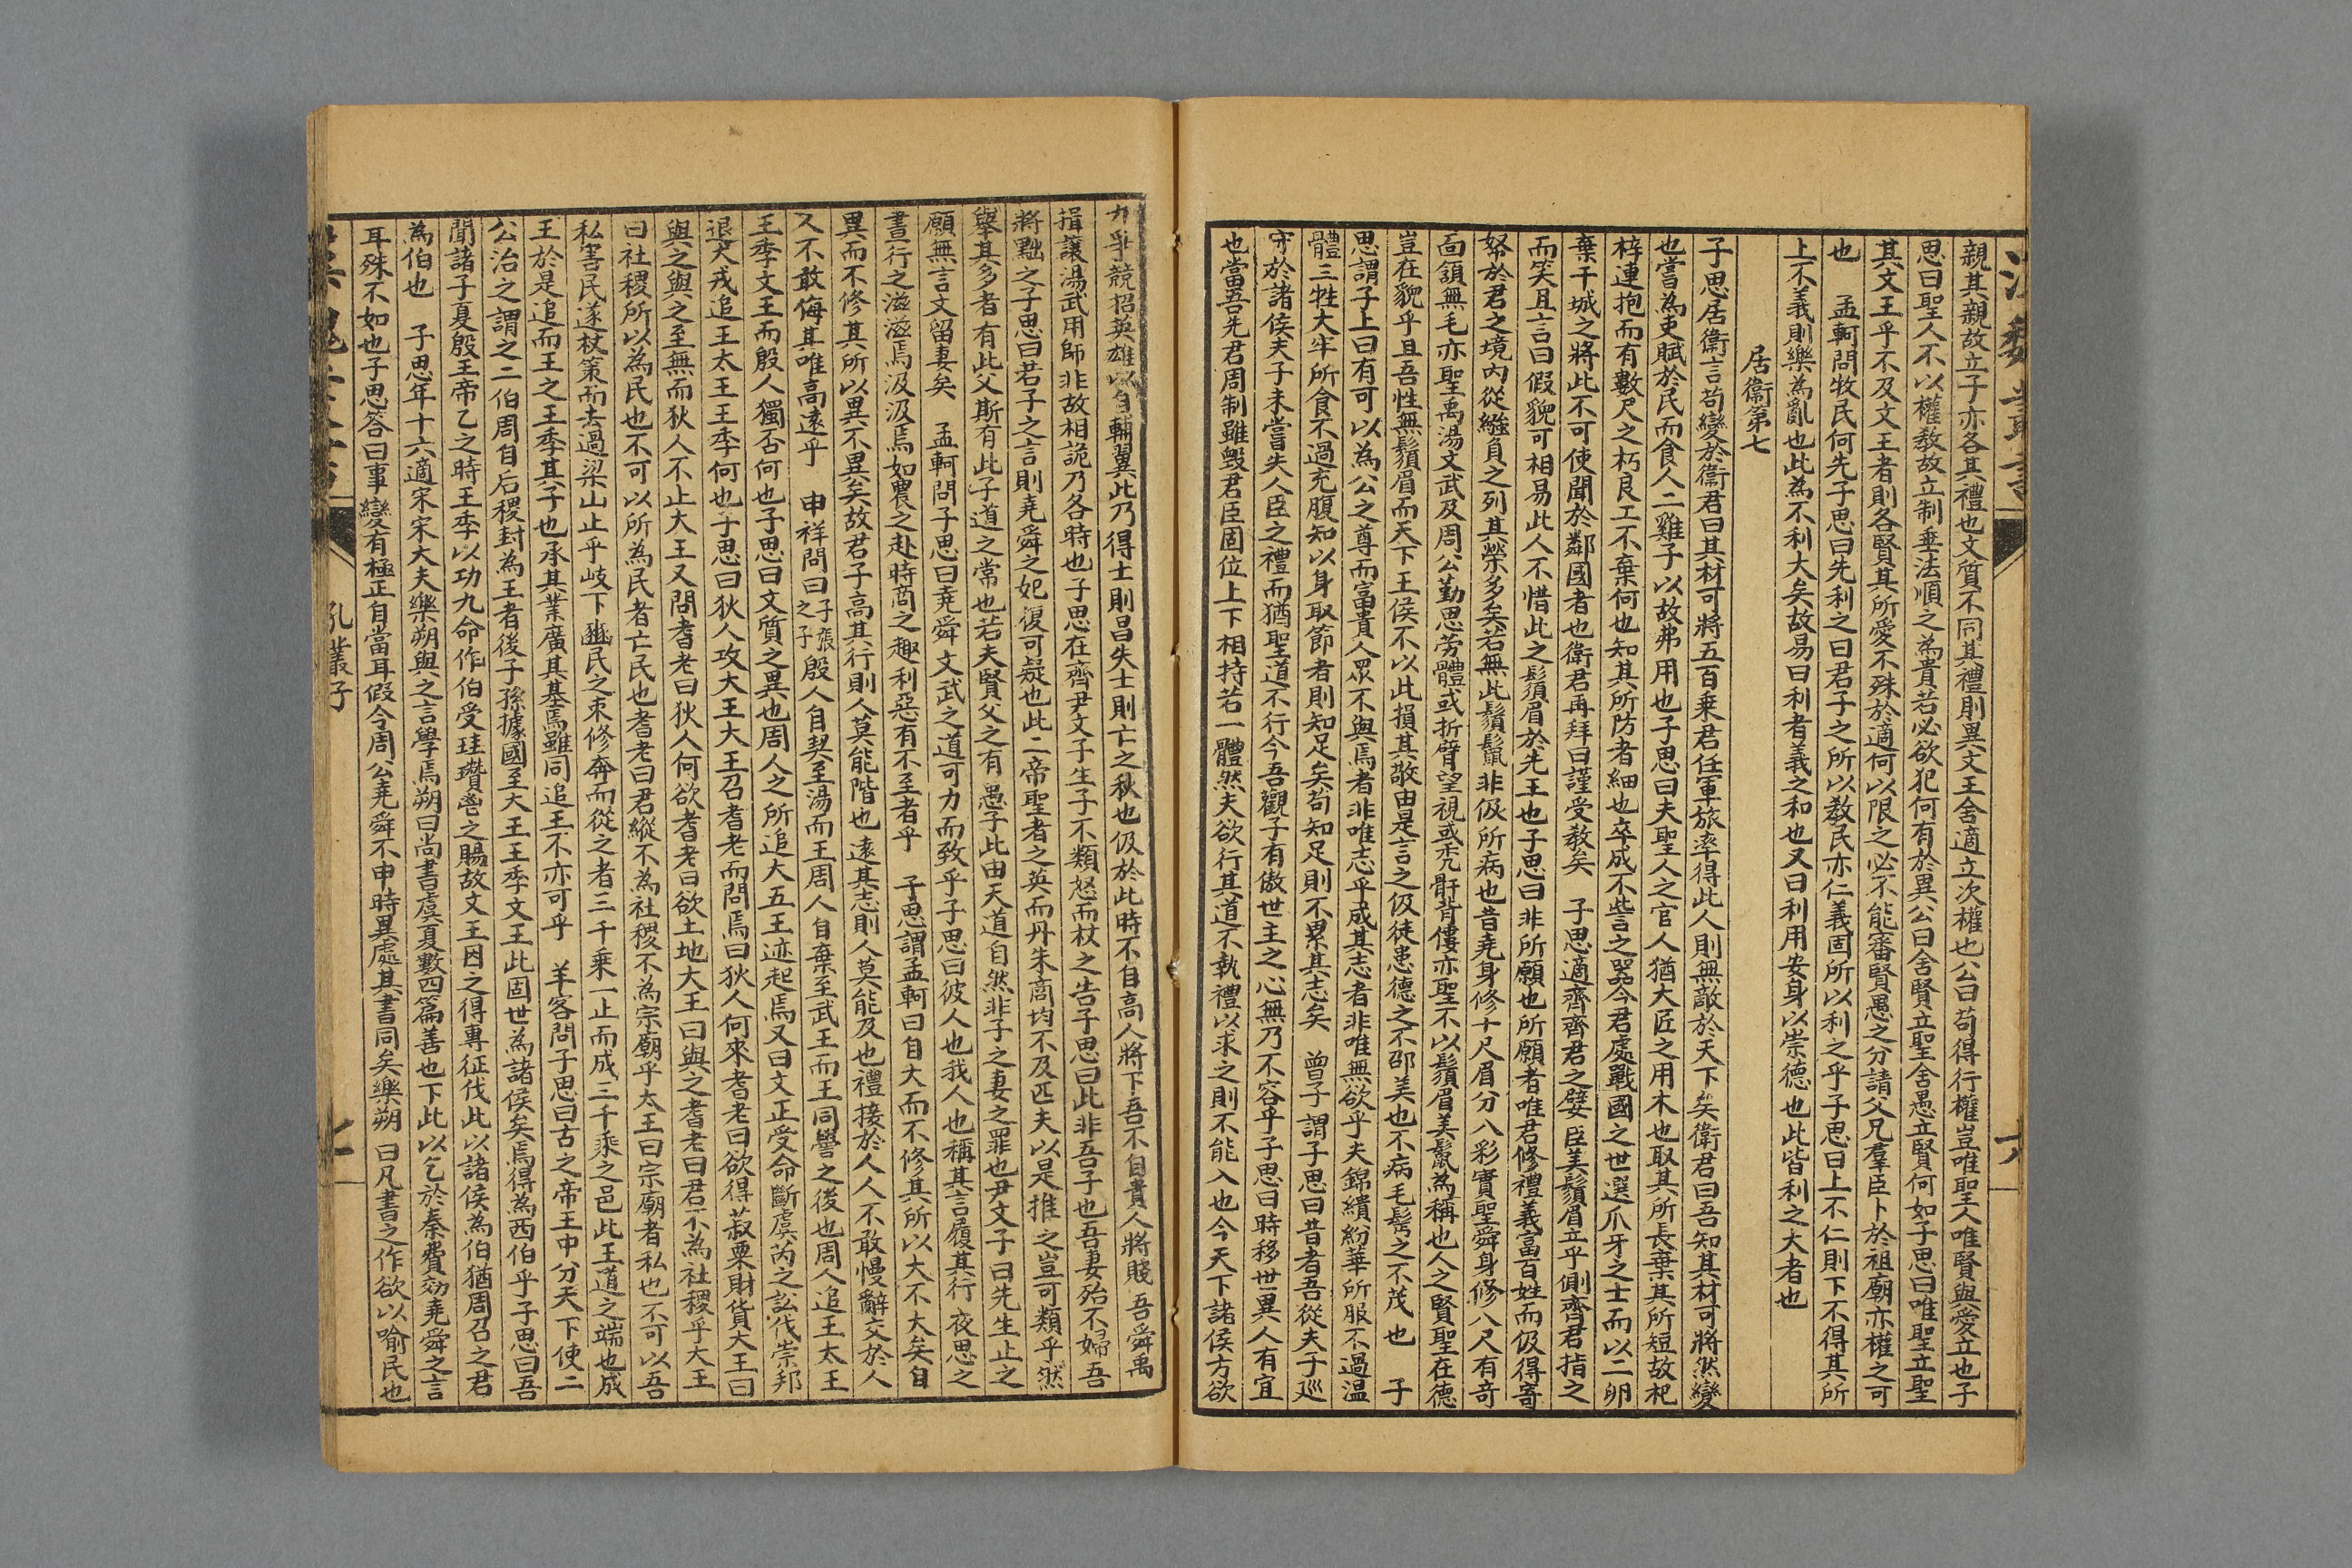 漢魏叢書
六
親其親故立子亦各其禮也文質不同其禮則異文王舍適立次權也公曰苟得行權豈唯聖人唯賢與愛立也子
思曰聖人不以權教故立制垂法順之為貴若必欲犯何有於異公曰舍賢立聖舍愚立賢何如子思曰唯聖立聖
其文王乎不及文王者則各賢其所愛不殊於適何以限之必不能審賢愚之分請父兄羣臣卜於祖廟亦權之可
也　孟軻問牧民何先子思曰先利之曰君子之所以教民亦仁義固所以利之乎子思曰上不仁則下不得其所
上不義則樂為亂也此為不利大矣故易曰利者義之和也又曰利用安身以崇德也此皆利之大者也
居衞第七
子思居衞言苟變於衞君曰其材可將五百乘君任軍旅率得此人則無敵於天下矣衛君曰吾知其材可將然變
也嘗為吏賦於民而食人二雞子以故弗用也子思曰夫聖人之官人猶大匠之用木也取其所長棄其所短故杞
梓連抱而有數尺之朽良工不棄何也知其所防者細也卒成不訾之器今君處戰國之世選爪牙之士而以二卵
棄干城之將此不可使聞於鄰國者也衛君再拜曰謹受教矣　子思適齊齊君之嬖臣美鬚眉立乎側齊君指之
而笑且言曰假貌可相易此人不惜此之鬚眉於先王也子思曰非所願也所願者唯君修禮義富百姓而伋得寄
帑於君之境內從繈負之列其榮多矣若無此鬚鬣非伋所病也昔堯身修十尺眉分八彩實聖舜身修八尺有奇
面頷無毛亦聖禹湯文武及周公勤思勞體或折臂望視或禿骭背僂亦聖不以鬚眉美鬣為稱也人之賢聖在德
豈在貌乎且吾性無鬚眉而天下王侯不以此損其敬由是言之伋徒患德之不邵美也不病毛鬢之不茂也　子
思謂子上曰有可以為公之尊而富貴人眾不與焉者非唯志乎成其志者非唯無欲乎夫錦繢紛華所服不過溫
體三牲大牢所食不過充腹知以身取節者則知足矣苟知足則不累其志矣　曾子謂子思曰昔者吾從夫子巡
守於諸侯夫子未嘗失人臣之禮而猶聖道不行今吾觀子有傲世主之心無乃不容乎子思曰時移世異人有宜
也當吾先君周制雖毀君臣固位上下相持若一體然夫欲行其道不執禮以求之則不能入也今天下諸侯方欲
力爭競招英雄以自輔翼此乃得士則昌失士則亡之秋也伋於此時不自高人將下吾不自貴人將賤吾舜禹
揖讓湯武用師非故相詭乃各時也子思在齊尹文子生子不類怒而杖之告子思曰此非吾子也吾妻殆不婦吾
將黜之子思曰若子之言則堯舜之妃復可疑也此二帝聖者之英而丹朱商均不及匹夫以是推之豈可類乎然
舉其多者有此父斯有此子道之常也若夫賢父之有愚子此由天道自然非子之妻之罪也尹文子曰先生止之
願無言文留妻矣　孟軻問子思曰堯舜文武之道可力而致乎子思曰彼人也我人也稱其言履其行夜思之
晝行之滋滋焉汲汲焉如農之赴時商之趣利惡有不至者乎　子思謂孟軻曰自大而不修其所以大不大矣自
異而不修其所以異不異矣故君子高其行則人莫能階也遠其志則人莫能及也禮接於人人不敢慢辭交於人
人不敢侮其唯高遠乎　申祥問曰子張之子殷人自契至湯而王周人自棄至武王而王同嚳之後也周人追王太王
王季文王而殷人獨否何也子思曰文質之異也周人之所追大五王迹起焉又曰文正受命斷虞芮之訟伐崇邦
退犬戎追王太王王季何也子思曰狄人攻大王大王召耆老而問焉曰狄人何來耆老曰欲得菽粟財貨大王曰
與之與之至無而狄人不止大王又問耆老曰狄人何欲耆老曰欲土地大王曰與之耆老曰君不為社稷乎大王
曰社稷所以為民也不可以所為民者亡民也耆老曰君縱不為社稷不為宗廟乎太王曰宗廟者私也不可以吾
私害民遂杖策而去過梁山止乎岐下豳民之束修奔而從之者三千乘一止而成三千乘之邑此王道之端也成
王於是追而王之王季其子也承其業廣其基焉雖同追王不亦可乎　羊客問子思曰古之帝王中分天下使二
公治之謂之二伯周自后稷封為王者後子孫據國至大王王季文王此固世為諸侯矣焉得為西伯乎子思曰吾
聞諸子夏殷王帝乙之時王季以功九命作伯受珪瓚鬯之賜故文王因之得專征伐此以諸侯為伯猶周召之君
為伯也　子思年十六適宋宋大夫樂朔與之言學焉朔曰尚書虞夏數四篇善也下此以乞於秦費効堯舜之言
耳殊不如也子思答曰事變有極正自當耳假令周公堯舜不申時異處其書同矣樂朔　曰凡書之作欲以喻民也
孔叢子
七